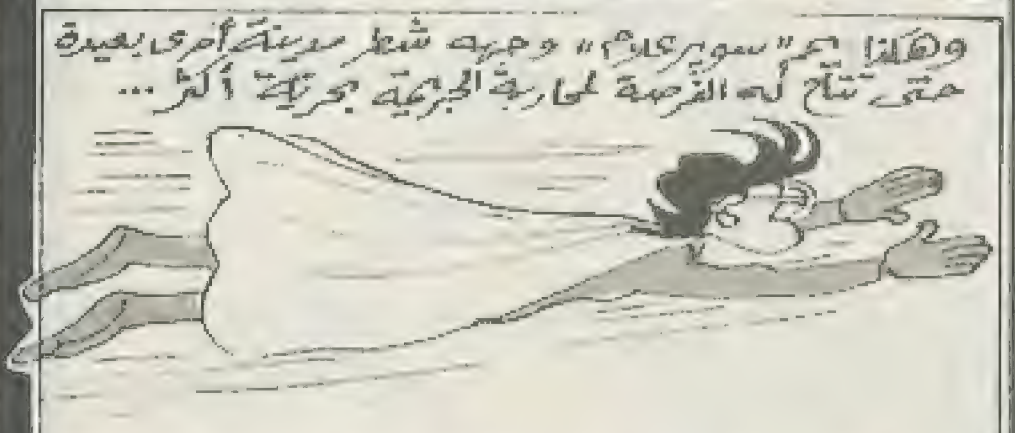 وهكذا يمم "سوبر علام" وجهه شطر مدينة أخرى بعيدة
حتى تتاح له الفرصة لمحاربة الجريمة بحرية أكثر ...